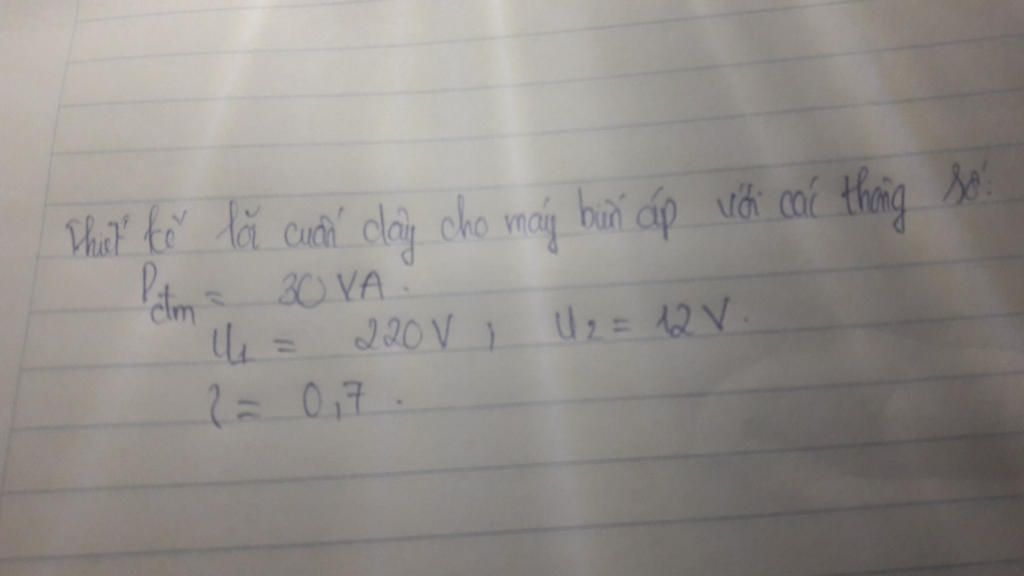 Thiết kế lõi cuốn dây cho máy biến áp với các thông số:
Pđm = 30 VA.
U1 = 220V ; U2 = 12V.
η = 0,7.